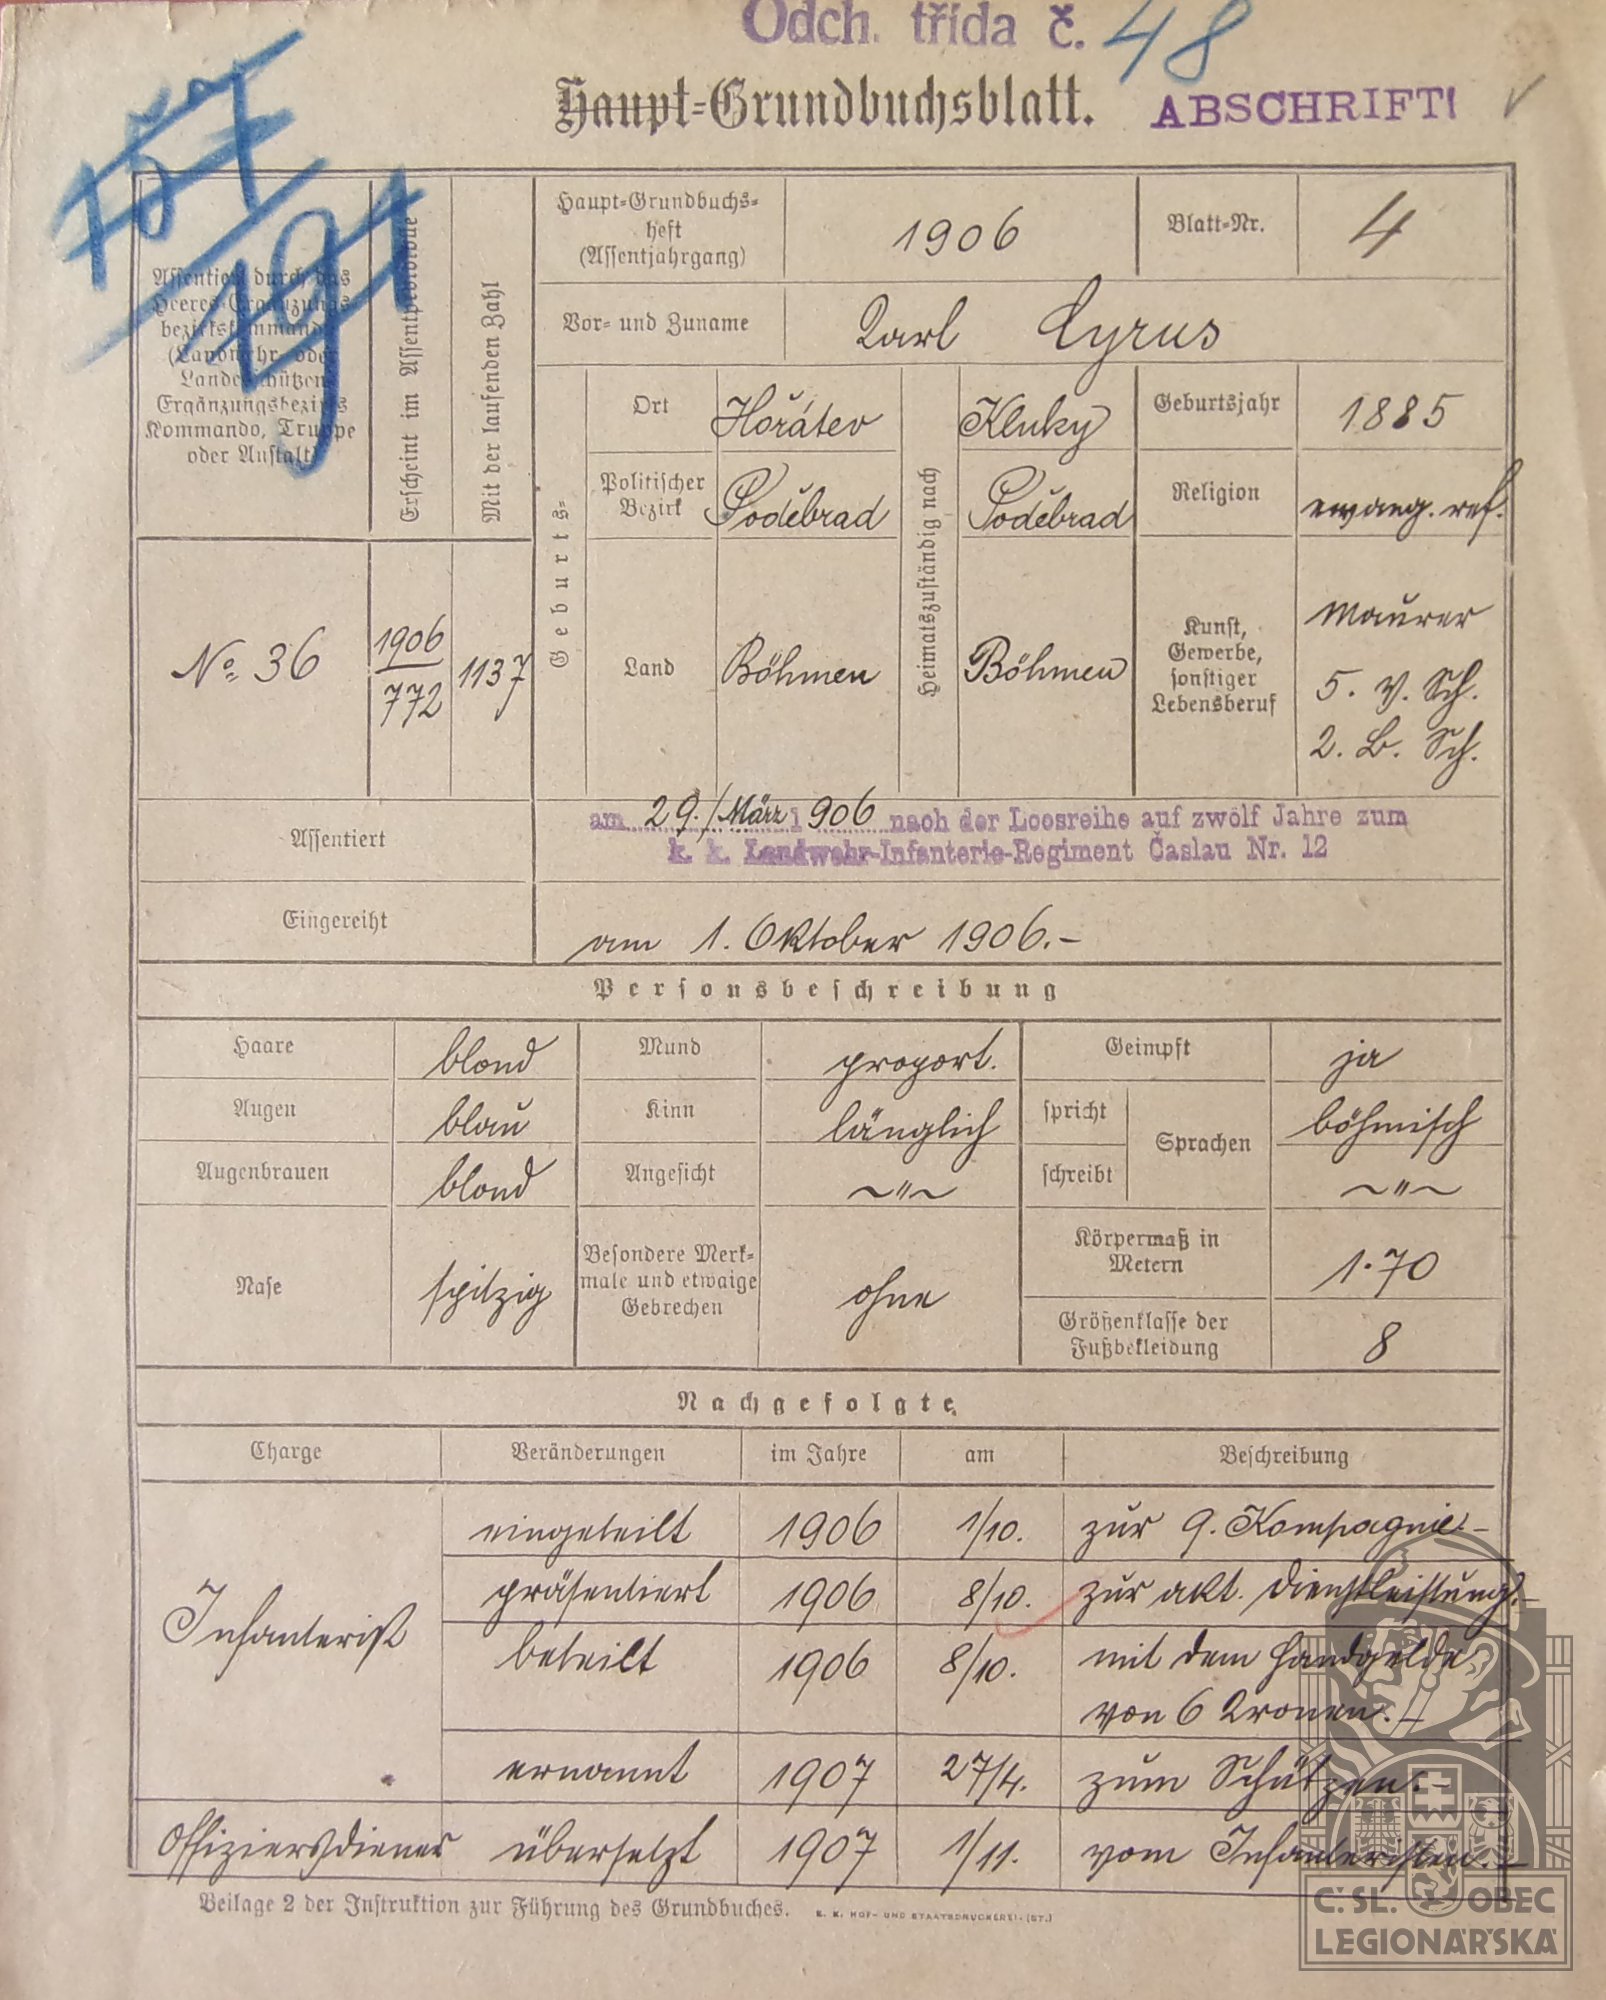 Odch. třída č. 48
Haupt-Grundbuchsblatt. ABSCHRIFT!
191
Assentiert durch das Heeres-Ergänzungs-
bezirkskommando
(Landwehr- oder
Landesschützen-
Ergänzungsbezirks-
Kommando, Truppe
oder Anstalt)
Erscheint im Assentprotokolle
Mit der laufenden Zahl
Haupt-Grundbuchs-
heft
(Assentjahrgang)
1906
Blatt-Nr.
4
Vor- und Zuname
Karl Cyrus
Geburts-
Ort
Hořátev
Heimatszuständig nach
Kluky
Geburtsjahr
1885
Politischer
Bezirk
Poděbrad
Poděbrad
Religion
evang. ref.
No. 36
1906
772
1137
Land
Böhmen
Böhmen
Kunst,
Gewerbe,
sonstiger
Lebensberuf
Maurer
5. V. Sch.
2. B. Sch.
Assentiert
am 29./März 1906 nach der Loosreihe auf zwölf Jahre zum
k. k. Landwehr-Infanterie-Regiment Časlau Nr. 12
Eingereiht
am 1. Oktober 1906.-
Personsbeschreibung
Haare
blond
Mund
proport.
Geimpft
ja
Augen
blau
Kinn
länglich
spricht
Sprachen
böhmisch
Augenbrauen
blond
Angesicht
~"~
schreibt
~"~
Nase
spitzig
Besondere Merk-
male und etwaige
Gebrechen
ohne
Körpermaß in
Metern
1·70
Größenklasse der
Fußbekleidung
8
Nachgefolgte
Charge Veränderungen im Jahre am Beschreibung
Infanterist
eingeteilt 1906 1/10. zur 9. Kompagnie.-
präsentiert 1906 8/10. zur akt. Dienstleistung.-
beteilt 1906 8/10. mit dem Handgelde
von 6 Kronen.-
ernannt 1907 27/4. zum Schützen.-
Offiziersdiener übersetzt 1907 1/11. vom Infanteristen.-
Beilage 2 der Instruktion zur Führung des Grundbuches. K. K. HOF- UND STAATSDRUCKEREI. (ST.)
Č. SL. OBEC
LEGIONÁŘSKÁ